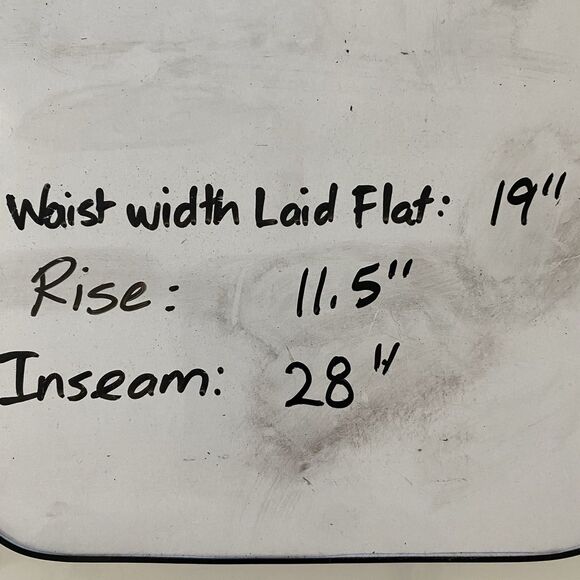 Waist width Laid Flat: 19"
Rise: 11.5"
Inseam: 28"